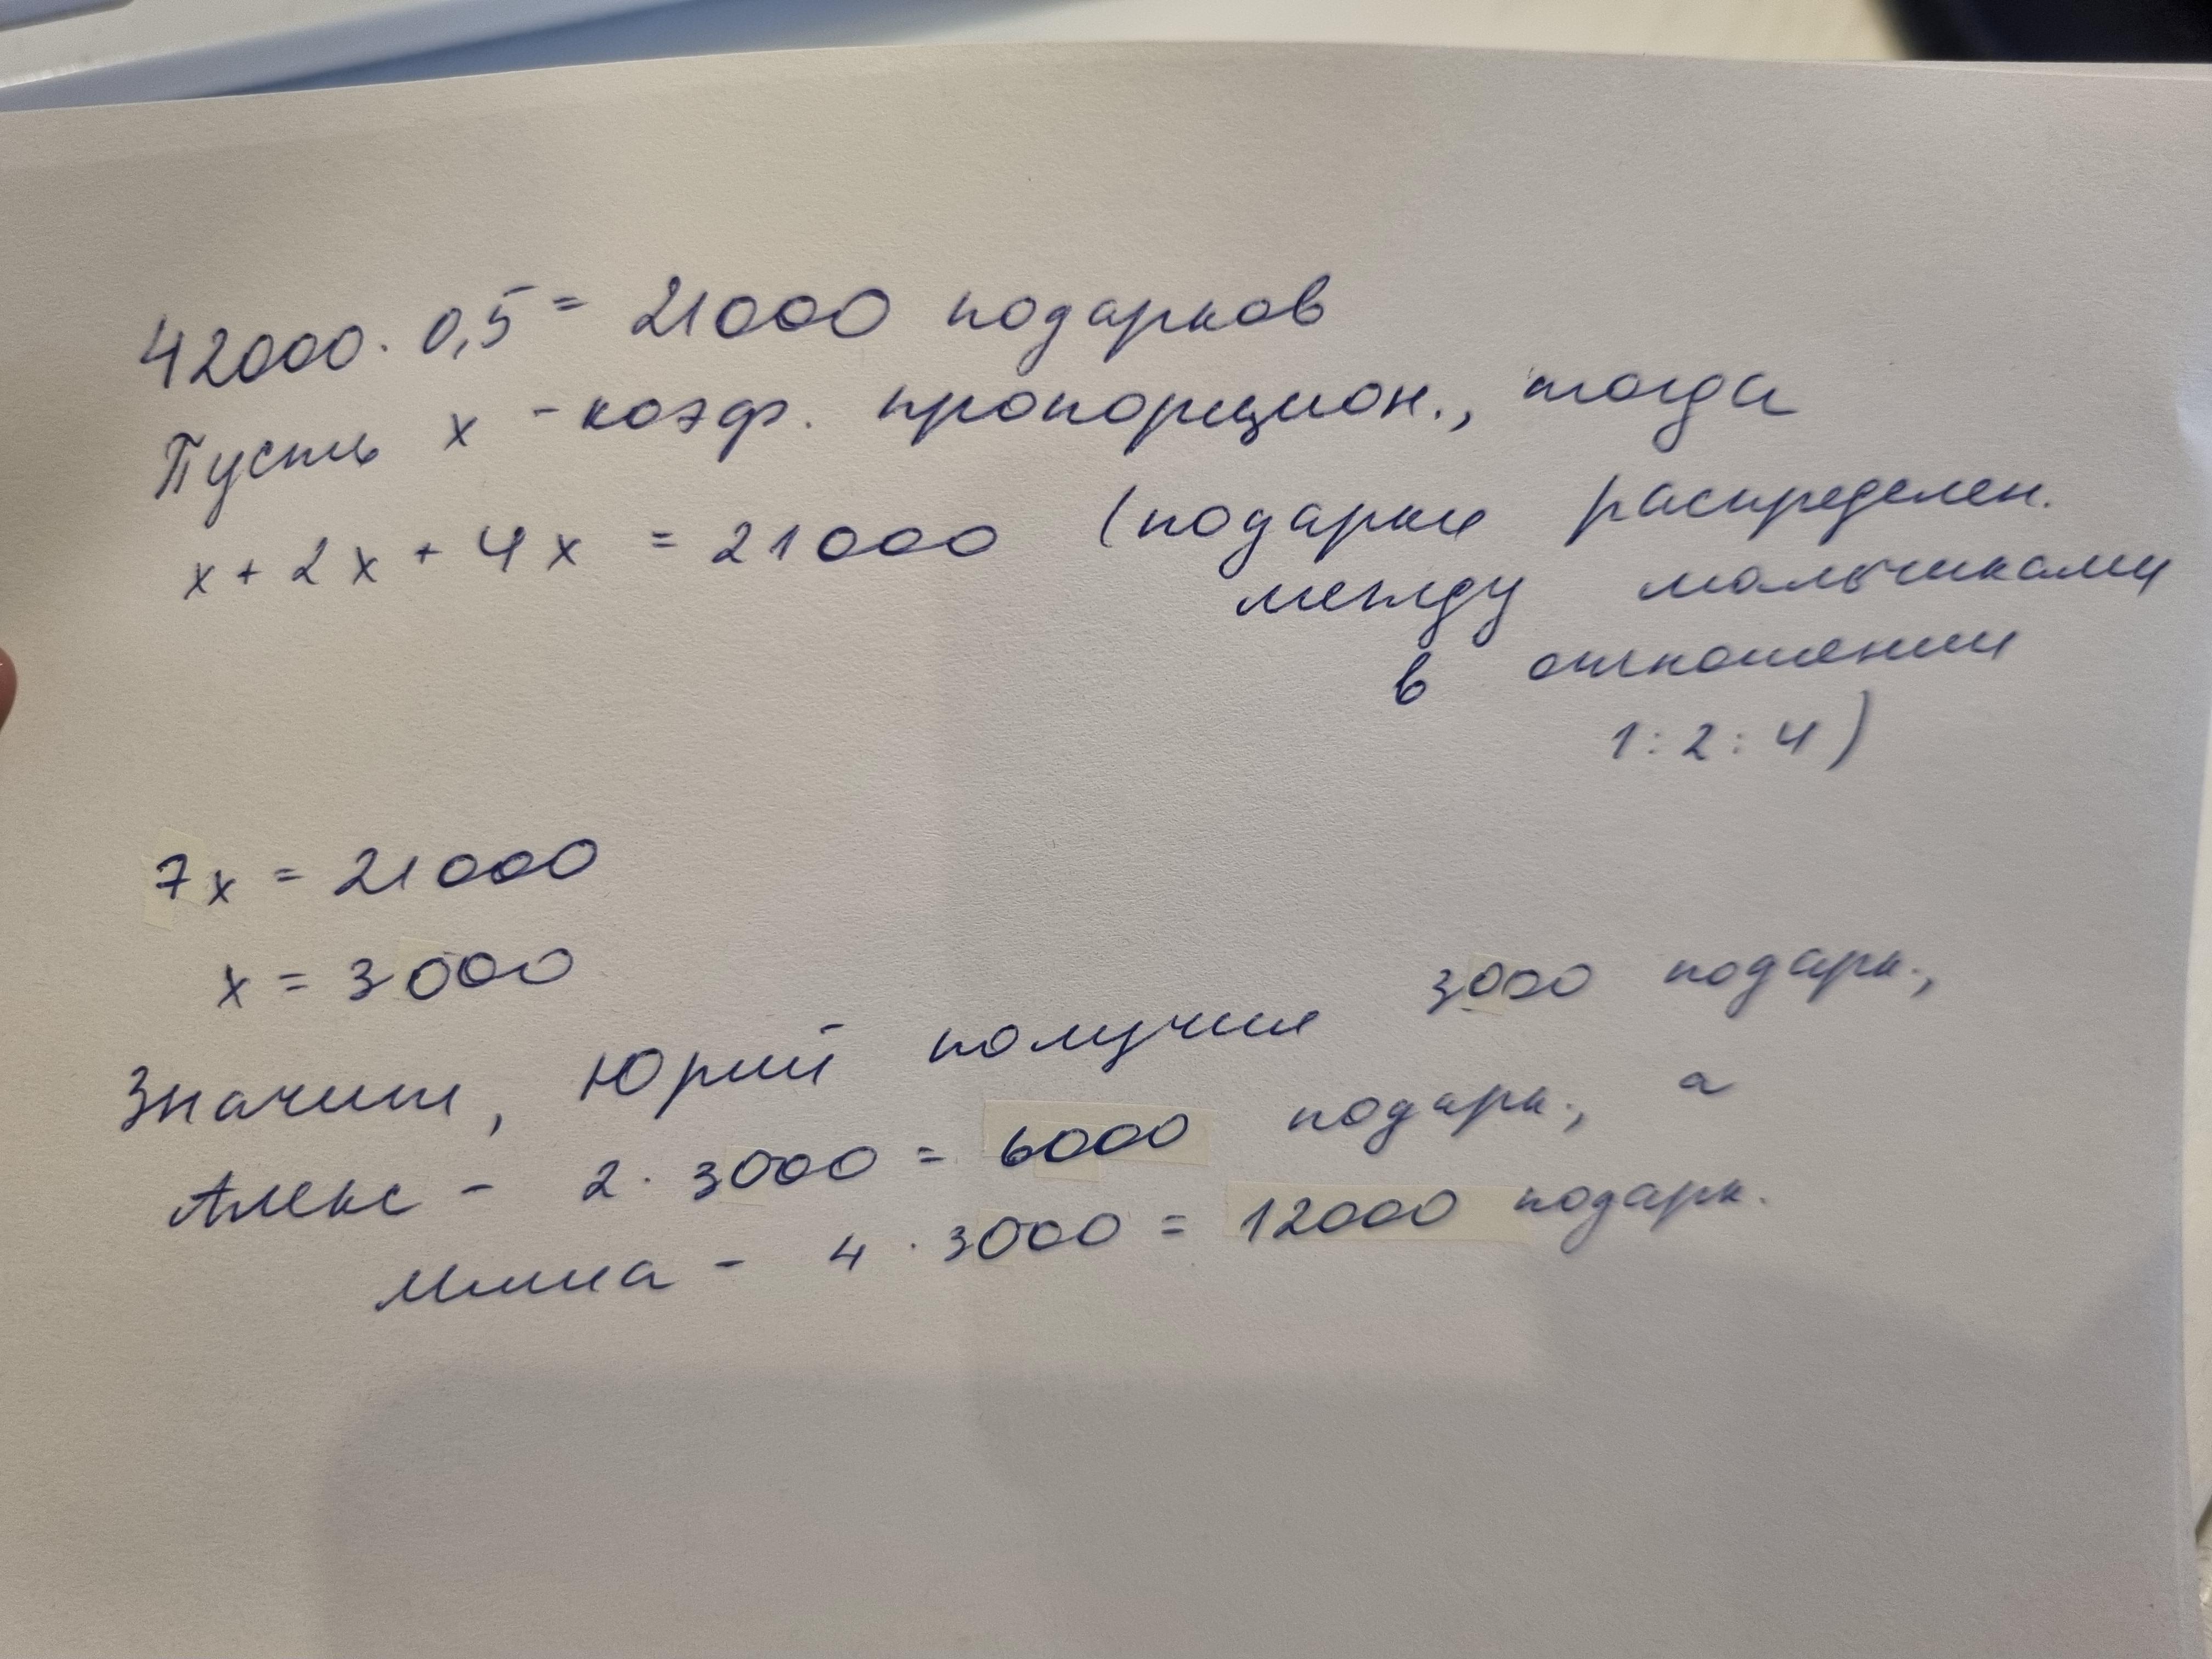 42000 · 0,5 = 21000 подарков
Пусть x - коэф. пропорцион., тогда
x + 2x + 4x = 21000 (подарки распределен.
между мальчиками
в отношении
1 : 2 : 4)
7x = 21000
x = 3000
Значит, Юрий получил 3000 подарк.,
Алекс - 2 · 3000 = 6000 подарк., а
Миша - 4 · 3000 = 12000 подарк.